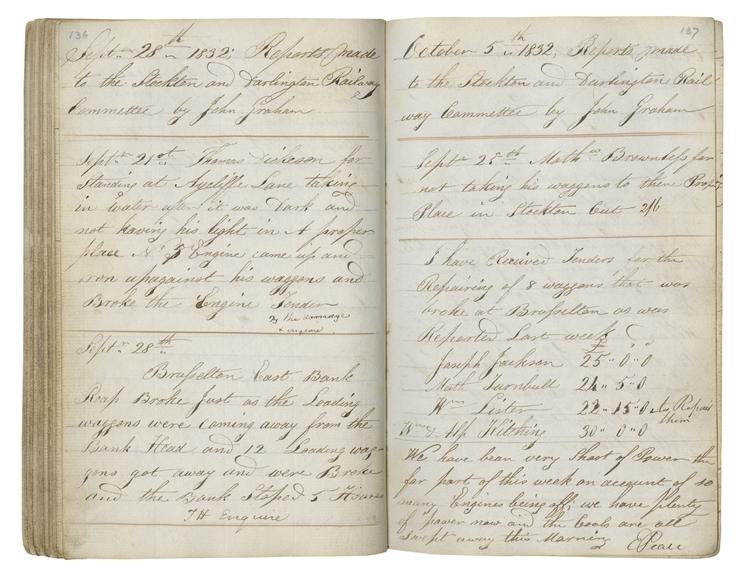 136
Septr 28th 1832; Reports made
to the Stockton and Darlington Railway
Committee by John Graham
Septr 21st Thomas Dickeson for
Standing at Aycliffe Lane taking
in water after it was Dark and
not having his light in A proper
place No 5 Engine came up and
ron upagainst his waggons and
Broke the Engine Tender
the damage
enquire
Septr 28th
Brusselton East Bank
Roap Broke Just as the Loading
waggons were coming away from the
Bank Head and 12 Loading wag-
gons got away and were Broke
and the Bank Stoped 5 Hours
TH Enquire
137
October 5th 1832, Reports made
to the Stockton and Darlington Rail
way Committee by John Graham
Septr 28th Mathw Brownless for
not taking his waggons to there Proper
Place in Stockton Cut 2/6
I have Received Tenders for the
Repairing of 8 waggons that was
broke at Brusselton as was
Reported Last week
£
Joseph Jackson 25 " 0 " 0
Math Turnbull 24 " 5 " 0
Wm Lister 22 " 15 " 0 to Repair
them
Wm & Alf Kitching 30 " 0 " 0
We have bean very Short of Power the
far part of this week on account of so
many Engines being off; we have plenty
of power now and the Coals are all
Swept away this Morning
E Pease